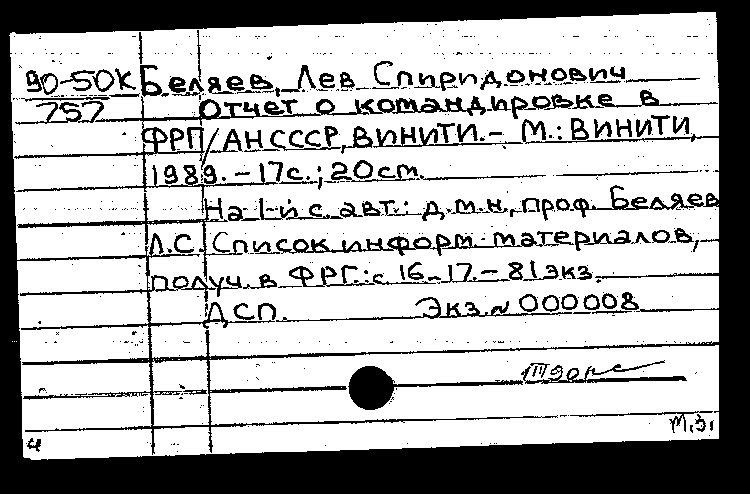 90-50К Беляев, Лев Спиридонович
757 Отчет о командировке в
ФРГ/АН СССР, ВИНИТИ.- М.: ВИНИТИ,
1989.-17с.; 20cm.
На 1-й с. авт.: д.м.н, проф. Беляев
Л.С. Список информ. материалов,
получ. в ФРГ.: с 16-17.- 81 экз.
ДСП. Экз. № 000008
4 м.э.